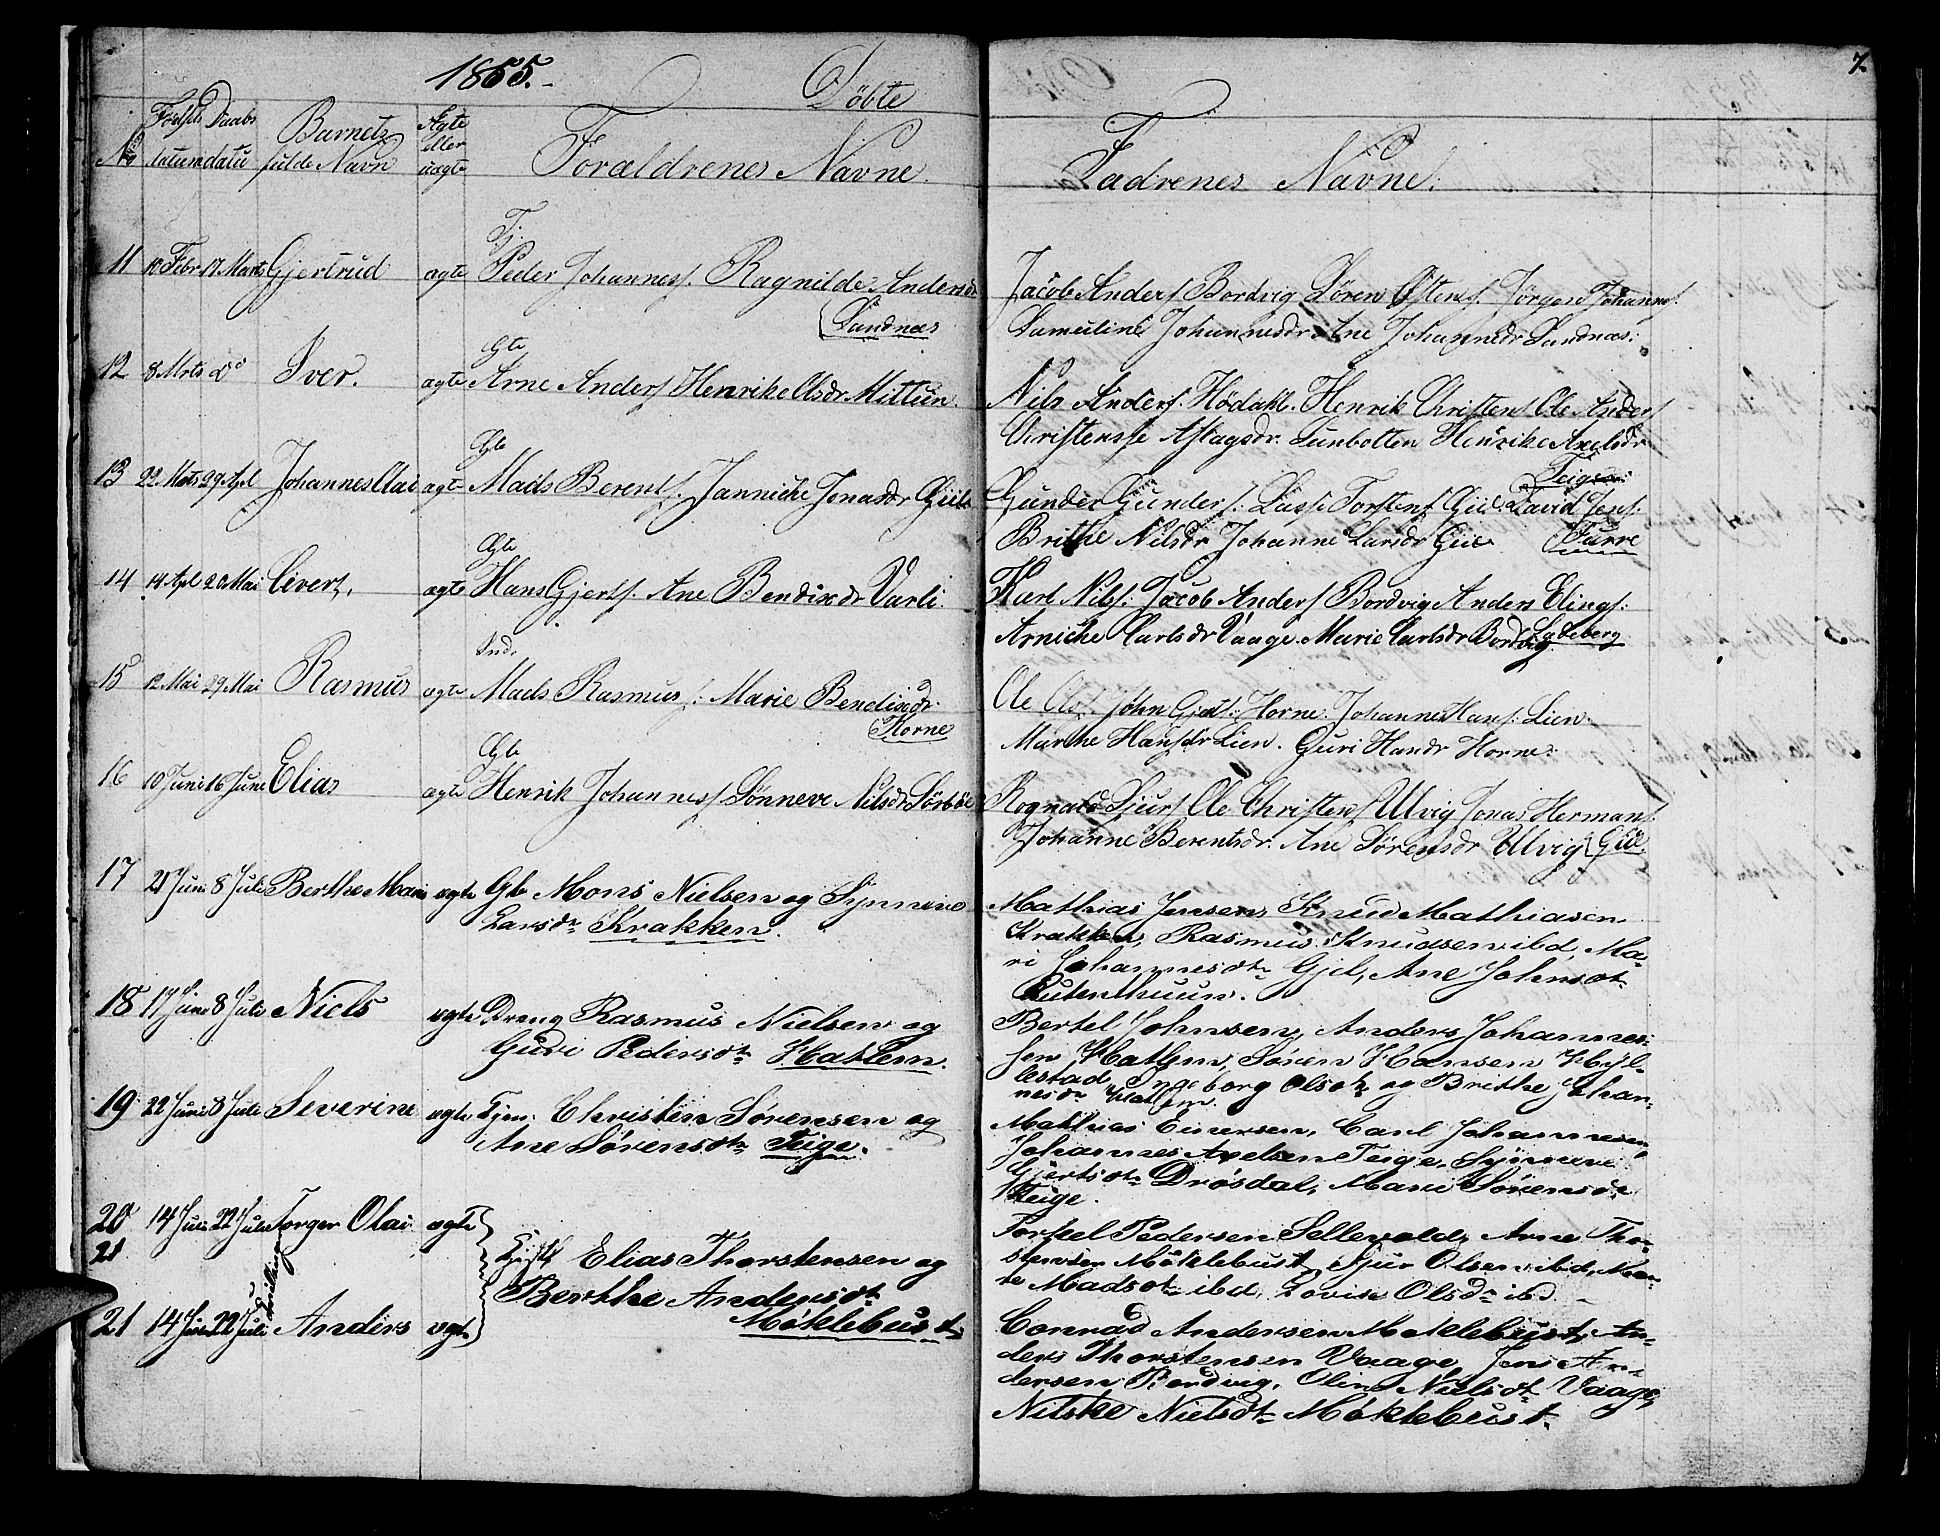 1855.
Döbte
7.
No Födsels Daabs Barnets Ægte Forældrenes Navne. Fadrenes Navne:
datum datu fulde Navn eller uægte
11 10 Febr 17 Marts Gjertrud ægte Tj. Peder Johanness. Ragnilde Andersdr
Sandnæs
Jacob Anders Bordvig Sören Östens. Jörgen Johannes
Samuline Johannesdr Ane Johannesdr Sandnæs:
12 8 Mrts do Iver. ægte Gte Arne Anders Henrike Olsdr Mittun.
Nils Anders. Hödahl. Henrik Christens Ole Anders
Henrike Axelsdr
Teigen
13 22 Mrts 29 Apl Johannes Olai ægte Gte Mads Berents. Jannicke Jonasdr Giil
Gunder Gunders: Lasse Torstens Giil. David Jens.
Brithe Nilsdr Johanne Larsdr Giil Furre
14 14 Apl 20 Mai Civert, ægte Gte Hans Gjerts. Ane Bendixdr Varli.
Karl Nils: Jacob Anders Bordvig Anders Elings:
Arnicke Carlsdr Vaage. Marie Carlsdr Bordvig
15 12 Mai 29 Mai Rasmus ægte Ind. Mads Rasmus: Marie Bendixdr.
Horne
Ole Ols. John Gjert: Horne. Johannes Hans: Lien.
Marthe Hansdr Lien. Guri Hansdr Horne:
16 10 Juni 16 June Elias ægte Gte Henrik Johanness Sönneve Nilsdr Sörböe
Rognald Sjurs Ole Christens Ulvig Jonas Hermans.
Johanne Berentsdr. Ane Sörensdr Ulvig Giil.
17 21 Juni 8 Juli Berthe Marie ægte Gb Mons Nielsen og Synneve
Larsdr Krakken.
Mathias Jensen, Knud Mathiasen
Krakken, Rasmus Knudsen ibd, Ma-
ri Johannesdtr Gjil, Ane Johnsdt
18 17 Juni 8 Juli Niels ægte Dreng Rasmus Nielsen og
Guri Pedersdtr Hatlem.
Bertel Johnsen, Anders Johannes-
sen Hatlem, Sören Hansen Hyl-
lestad, Ingeborg Olsdtr og Brithe Johan-
nesdr Hatlem.
19 22 Juni 8 Juli Severine ægte Tjen: Christen Sørensen og
Ane Sørensdtr Teige.
Mathias Einersen, Carl Johannesen
Johannes Axelsen Teige, Synneve
Gjertsdtr Drösdal, Marie Sörensdr
Teige.
20 14 Juli 22 Juli Torger Olai ægte
21
Tvillinger
Elias Thorstensen og
Berthe Andersdt
Møklebust
Torkel Pedersen Sellevold, Arne Thor-
stensen Möklebust, Sjur Olsen ibd, Mar-
te Madsdt ibd, Lovise Olsdr ibd
21 14 Juli 22 Juli Anders ægte
Conrad Andersen Møklebust, An-
ders Thorstensen Vaage, Jens An-
dersen Bordvig, Oline Nielsdt Vaage,
Nilske Nielsdt Møklebust.